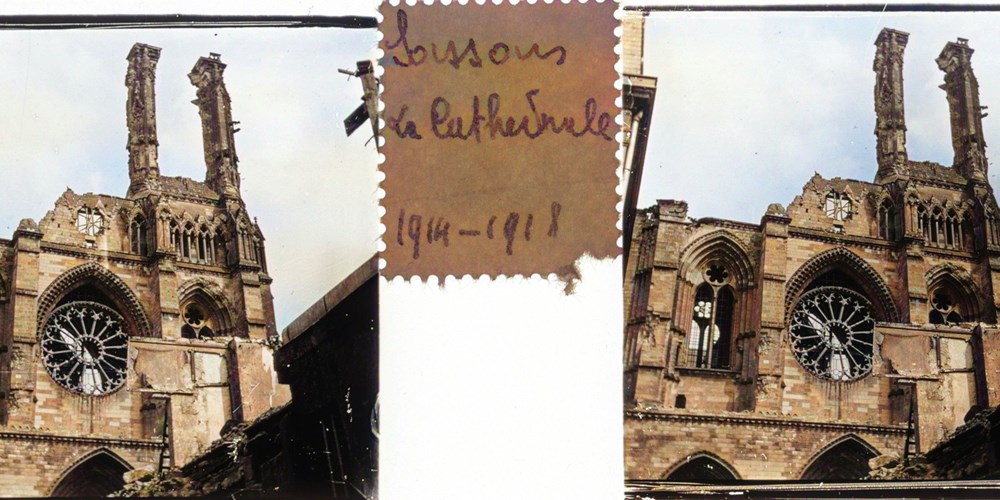 Soissons
La Cathédrale
1914-1918